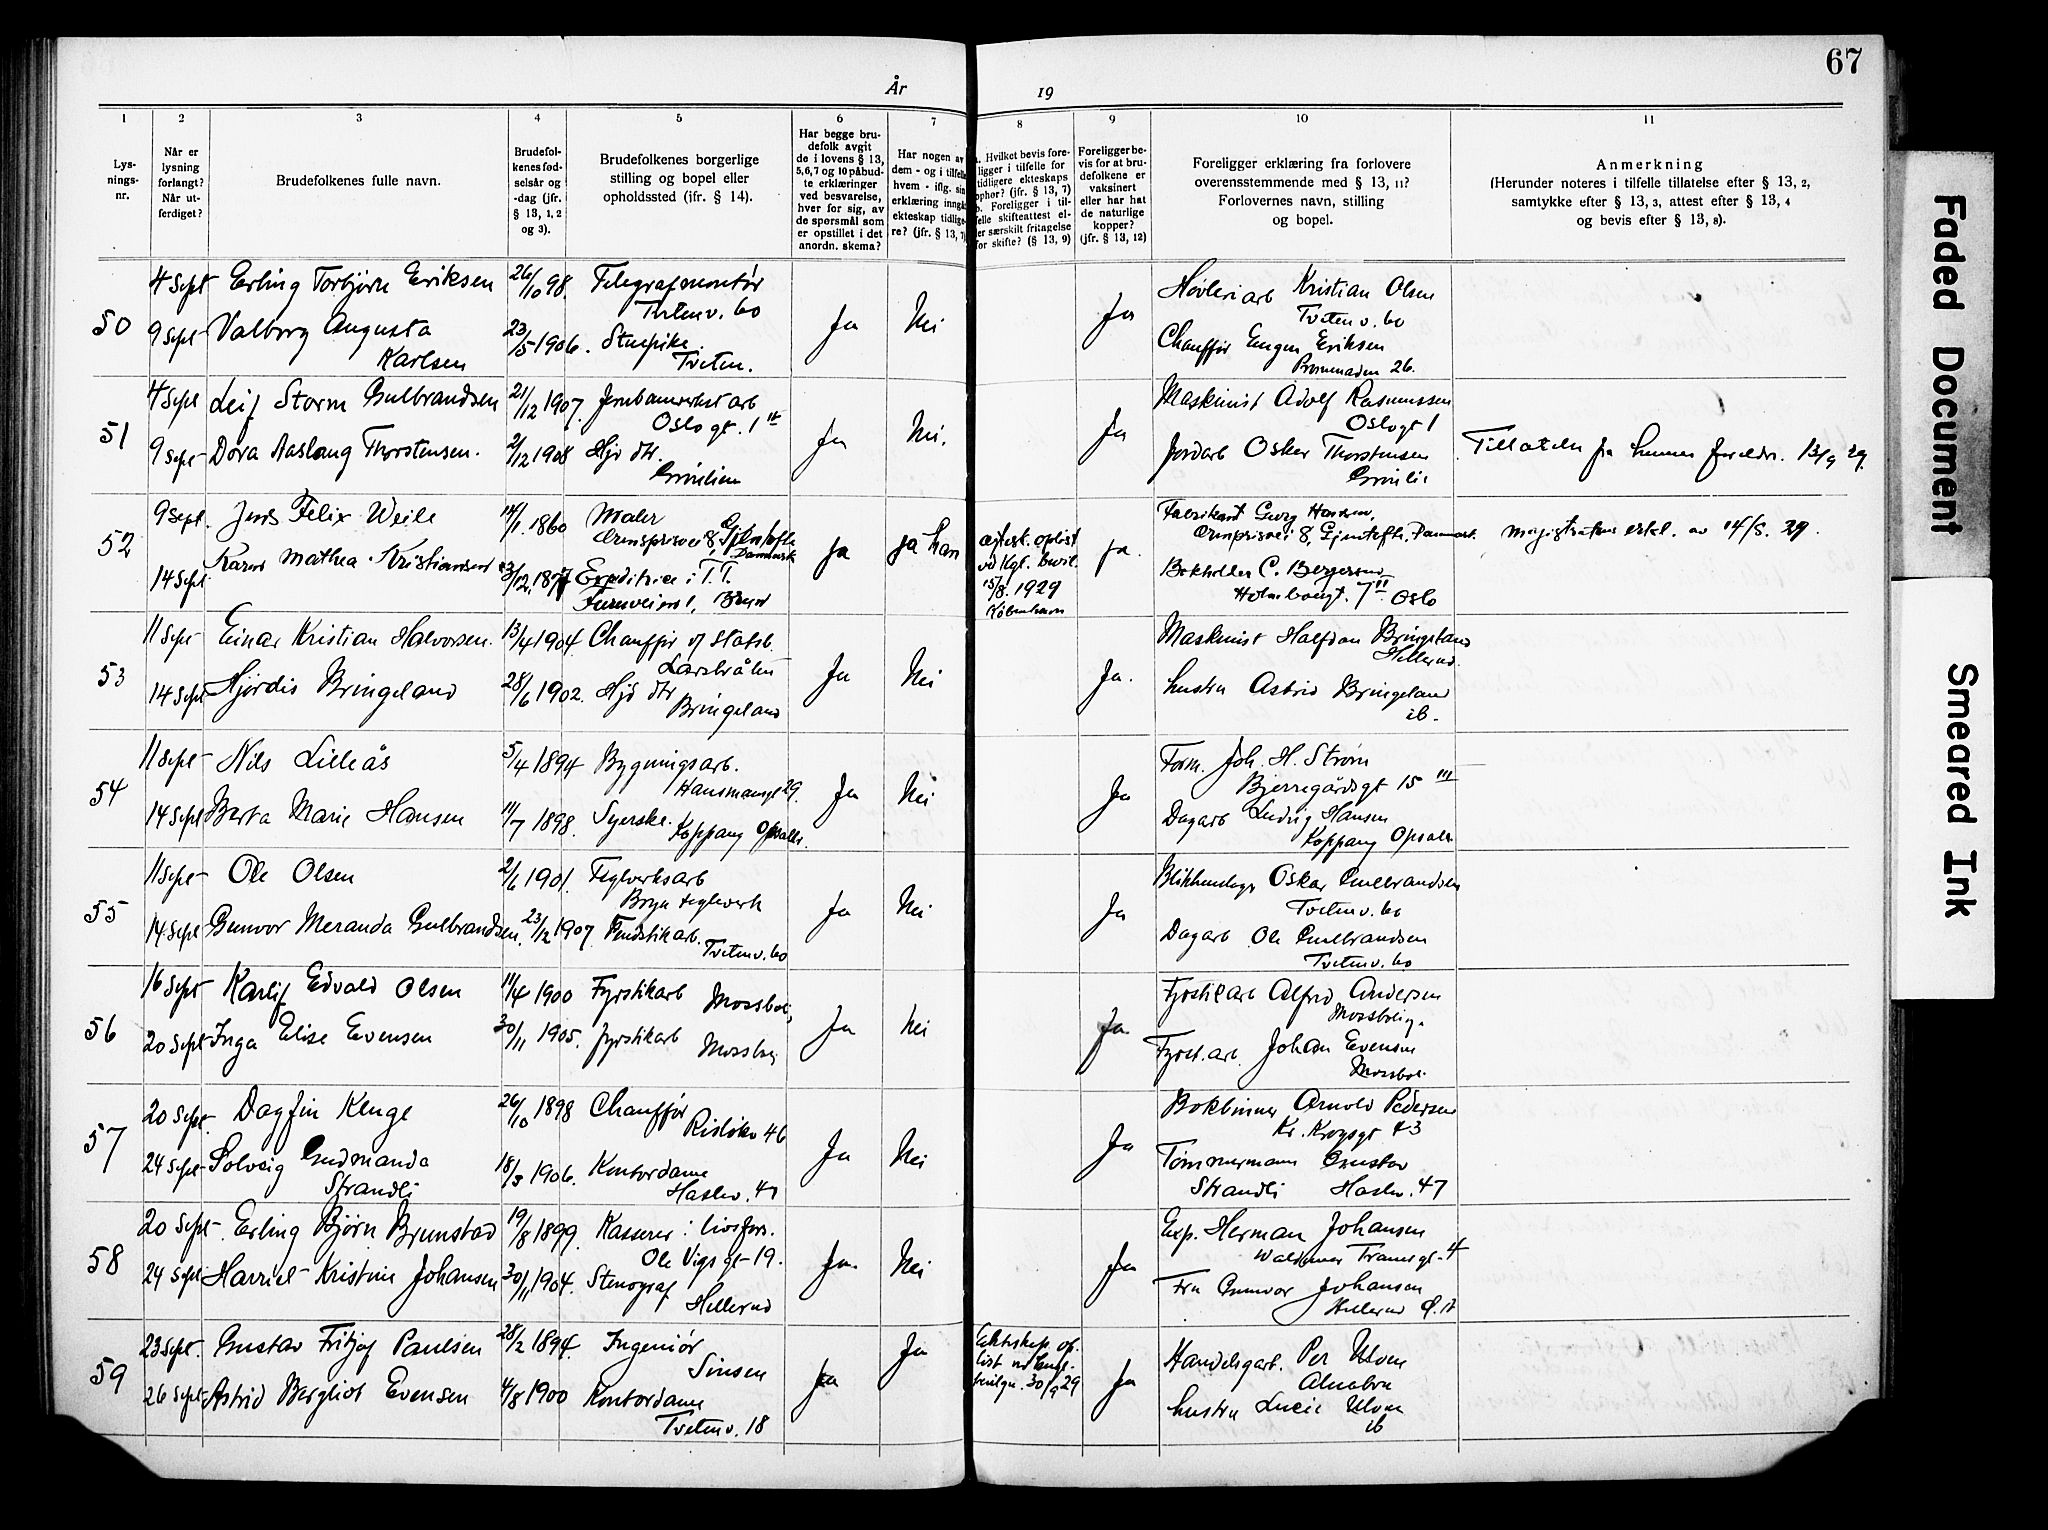 67
År
19
1
2
3
4
5
6
7
8
9
10
11
Lys-
nings-
nr.
Når er
lysning
forlangt?
Når ut-
ferdiget?
Brudefolkenes fulle navn.
Brudefol-
kenes fød-
selsår og
-dag (jfr.
§ 13, 1, 2
og 3).
Brudefolkenes borgerlige
stilling og bopel eller
opholdssted (jfr. § 14).
Har begge bru-
defolk avgit
de i lovens § 13,
5,6,7 og 10 påbud-
te erklæringer
ved besvarelse,
hver for sig, av
de spørsmål som
er opstillet i det
anordn. skema?
Har nogen av
dem - og i tilfelle
hvem - iflg. sin
erklæring inngå
ekteskap tidlige-
re? (jfr. § 13, 7)
. Hvilket bevis fore-
ligger i tilfelle for
tidligere ekteskaps
ophør? (jfr. § 13, 7)
b. Foreligger i til-
felle skifteattest el-
ler særskilt fritagelse
for skifte? (§ 13, 9)
Foreligger be-
vis for at bru-
defolkene er
vaksinert
eller har hat
de naturlige
kopper?
(jfr. § 13, 12)
Foreligger erklæring fra forlovere
overensstemmende med § 13, 11?
Forlovernes navn, stilling
og bopel.
Anmerkning
(Herunder noteres i tilfelle tillatelse efter § 13, 2,
samtykke efter § 13, 3, attest efter § 13, 4
og bevis efter § 13, 8).
50
4 Sept
9 Sept
Erling Torbjørn Eriksen
Valborg Augusta
Karlsen
26/10 98.
23/5 1906.
Telegrafmontør
Tvetenv. 60
Stuepike.
Tveten.
Ja
Nei
Ja
Høvleriarb Kristian Olsen
Tvetenv. 60
Chauffør Eugen Eriksen
Promenaden 26.
51
4 Sept
9 Sept
Leif Storm Gulbrandsen
Dora Aaslaug Thorstensen.
21/12 1907.
2/12 1908
Jernbaneverkst arb
Oslogt. 1
Hjv dtr.
Grønlien
Ja
Nei.
Ja
Maskinist Adolf Rasmussen
Oslogt 1
Jordarb Oskar Thorstensen
Grønlie
Tillatelse fra hennes foreldre. 13/9 29.
52
9 Sept.
14 Sept
Jens Felix Weile
Karen Mathea Kristiansen
14/1. 1860
3/12. 1877
Maler
Ørnsprisvei 8, Gjentofte
Danmark
Expeditrice i T.T.
Furuveien 1, Bryn
Ja
ja han
ektesk. opløst
ved Kgl. bevil.
15/8. 1929
København
ja.
Fabrikant Georg Hansen,
8, Gjentofte, Danmark.
Bokholder C. Bergersen
Holmboegt. 7 Oslo
magistratens erkl. av 14/8. 29.
53
11 Sept
14 Sept
Einar Kristian Halvorsen.
Hjørdis Bringeland
13/4 1904.
28/6 1902.
Chauffør v/ Statsb.
Larsbråten
Hjv dtr
Bringeland
Ja
Nei
Ja.
Maskinist Halfdan Bringeland
Hellerud.
hustru Astrid Bringeland
ib.
54
11 Sept
14 Sept
Nils Lilleås
Berta Marie Hansen
5/4 1894
11/7 1898.
Bygningsarb.
Hausmannsgt 29.
Syerske.
Koppang Opsalv.
Ja
Nei
Ja
Form. Joh. H. Strøm
Bjerregårdsgt 15 III
Dagarb Ludvig Hansen
Koppang Opsalv
55
11 Sept
14 Sept
Ole Olsen
Gunvor Meranda Gulbrandsen.
2/6 1901.
23/12 1907
Teglverksarb
Bryn teglverk
Fyrstikarb.
Tvetenv. 60
Ja
Nei
Ja
Blikkenslager Oskar Gulbrandsen
Tvetenv. 60
Dagarb Ole Gulbrandsen
Tvetenv. 60
56
16 Sept
20 Sept
Karlif Edvald Olsen
Inga Elise Evensen
11/4 1900
30/11 1905.
Fyrstikarb Mossbolig
Fyrstikarb Mossbolig
Ja
Nei
Ja.
Fyrstikarb Alfred Andersen
Mossbolig.
Fyrst. arb. Johan Evensen
Mossbol.
57
20 Sept.
24 Sept
Dagfin Kluge
Solveig Gudmanda
Strandli
26/10 1898
18/3 1906.
Chauffør
Risløkv 46
Kontordame
Haslev. 47
Ja
Nei
Ja
Bokbinner Arnold Pedersen
Kr. Krogsgt 43
Tømmermann Gustav
Strandli Haslev. 47
58
20 Sept
24 Sept
Erling Bjørn Brunstad
Harriet Kristine Johansen
19/8 1899.
30/11 1904.
Kasserer i livsfors.
Ole Vigs gt 19.
Stenograf
Hellerud
Ja.
Nei
Ja
Exp. Herman Johansen
Waldemar Tranesgt. 4
Fru Gunvor Johansen
Hellerud
59
23 Sept.
26 Sept
Gustav Fritjof Paulsen
Astrid Bergliot Evensen
28/2 1894.
4/8 1900
Ingeniør
Sinsen
Kontordame
Tvetenv. 18
Ja
Ja
Ekteskap op-
løst ved kngl.
bevilgn. 30/9 29
Ja
Handelsgart. Per Ulven
Alnabru
hustru Lucie Ulven
ib
Faded Document
Smeared Ink